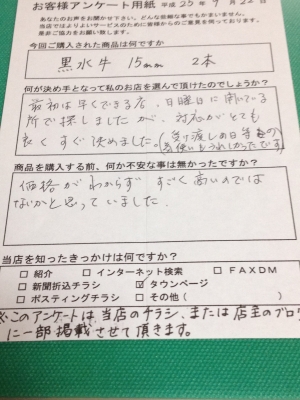 お客様アンケート用紙 平成25年9月22日
あなたのお声をお聞かせ下さい。どんな些細な事でもかまいません。
当店ではよりよいサービスのために皆様からのご意見を伺っております。
是非ご協力をお願い致します。
今回ご購入された商品は何ですか
黒水牛 15mm 2本
何が決め手となって私のお店を選んで頂けたのでしょうか?
最初は早くできる店、日曜日に開いている
所で探しましたが、対応がとても
良くすぐ決めました。(受け渡しの日時
使いもうれしかったです)
商品を購入する前、何か不安な事は無かったですか?
価格がわからず すごく高いのでは
ないかと思っていました。
当店を知ったきっかけは何ですか?
□ 紹介 □ インターネット検索 □ FAXDM
□ 新聞折込チラシ ☑ タウンページ
□ ポスティングチラシ □ その他(
※このアンケートは当店のチラシ、または店主のブログ
に一部掲載させて頂きます。